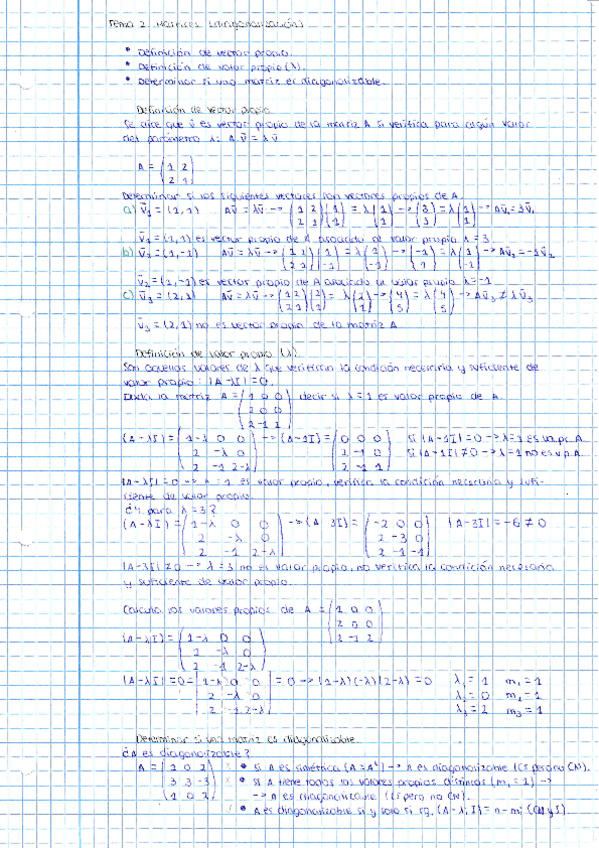 Tema 2. Matrices (diagonalización)
• Definición de vector propio.
• Definición de valor propio (λ).
• Determinar si una matriz es diagonalizable.
Definición de vector propio
Se dice que v̄ es vector propio de la matriz A si verifica para algún valor
del parámetro λ: A·v̄ = λv̄
A = (1 2
2 1)
Determinar si los siguientes vectores son vectores propios de A.
a) v̄₁ = (1,1) Av̄ = λv̄ --> (1 2; 2 1)(1; 1) = λ(1; 1) --> (3; 3) = λ(1; 1) --> Av̄₁ = 3v̄₁
v̄₁ = (1,1) es vector propio de A asociado al valor propio λ = 3
b) v̄₂ = (1,-1) Av̄ = λv̄ --> (1 2; 2 1)(1; -1) = λ(1; -1) --> (-1; 1) = λ(1; -1) --> Av̄₂ = -1v̄₂
v̄₂ = (1,-1) es vector propio de A asociado al valor propio λ = -1
c) v̄₃ = (2,1) Av̄ = λv̄ --> (1 2; 2 1)(2; 1) = λ(2; 1) --> (4; 5) = λ(4; 5) --> Av̄₃ ≠ λv̄₃
v̄₃ = (2,1) no es vector propio de la matriz A
Definición de valor propio (λ)
Son aquellos valores de λ que verifican la condición necesaria y suficiente de
valor propio: |A-λI| = 0.
Dada la matriz A = (1 0 0; 2 0 0; 2 -1 2) decir si λ = 1 es valor propio de A.
(A-λI) = (1-λ 0 0; 2 -λ 0; 2 -1 2-λ) --> (A-1I) = (0 0 0; 2 -1 0; 2 -1 1) Si |A-1I| = 0 --> λ=1 es v.p. A
Si |A-1I| ≠ 0 --> λ=1 no es v.p A.
|A-λI| = 0 --> λ = 1 es valor propio, verifica la condición necesaria y sufi-
ciente de valor propio.
¿Y para λ = 3?
(A-λI) = (1-λ 0 0; 2 -λ 0; 2 -1 2-λ) --> (A-3I) = (-2 0 0; 2 -3 0; 2 -1 -1) |A-3I| = -6 ≠ 0
|A-3I| ≠ 0 --> λ = 3 no es valor propio, no verifica la condición necesaria
y suficiente de valor propio.
Calcula los valores propios de A = (1 0 0; 2 0 0; 2 -1 2)
(A-λI) = (1-λ 0 0; 2 -λ 0; 2 -1 2-λ)
|A-λI| = 0 = |1-λ 0 0; 2 -λ 0; 2 -1 2-λ| = 0 --> (1-λ)(-λ)(2-λ) = 0 λ₁ = 1 m₁ = 1
λ₂ = 0 m₂ = 1
λ₃ = 2 m₃ = 1
Determinar si una matriz es diagonalizable.
¿A es diagonalizable?
A = (1 0 2; 3 3 -3; 1 0 2)
• Si A es simétrica (A = Aᵗ) --> A es diagonalizable (CS pero no CN).
• Si A tiene todos los valores propios distintos (mᵢ = 1) -->
--> A es diagonalizable (CS pero no CN).
• A es diagonalizable si y solo si rg. (A-λᵢI) = n-mᵢ (CN y S).